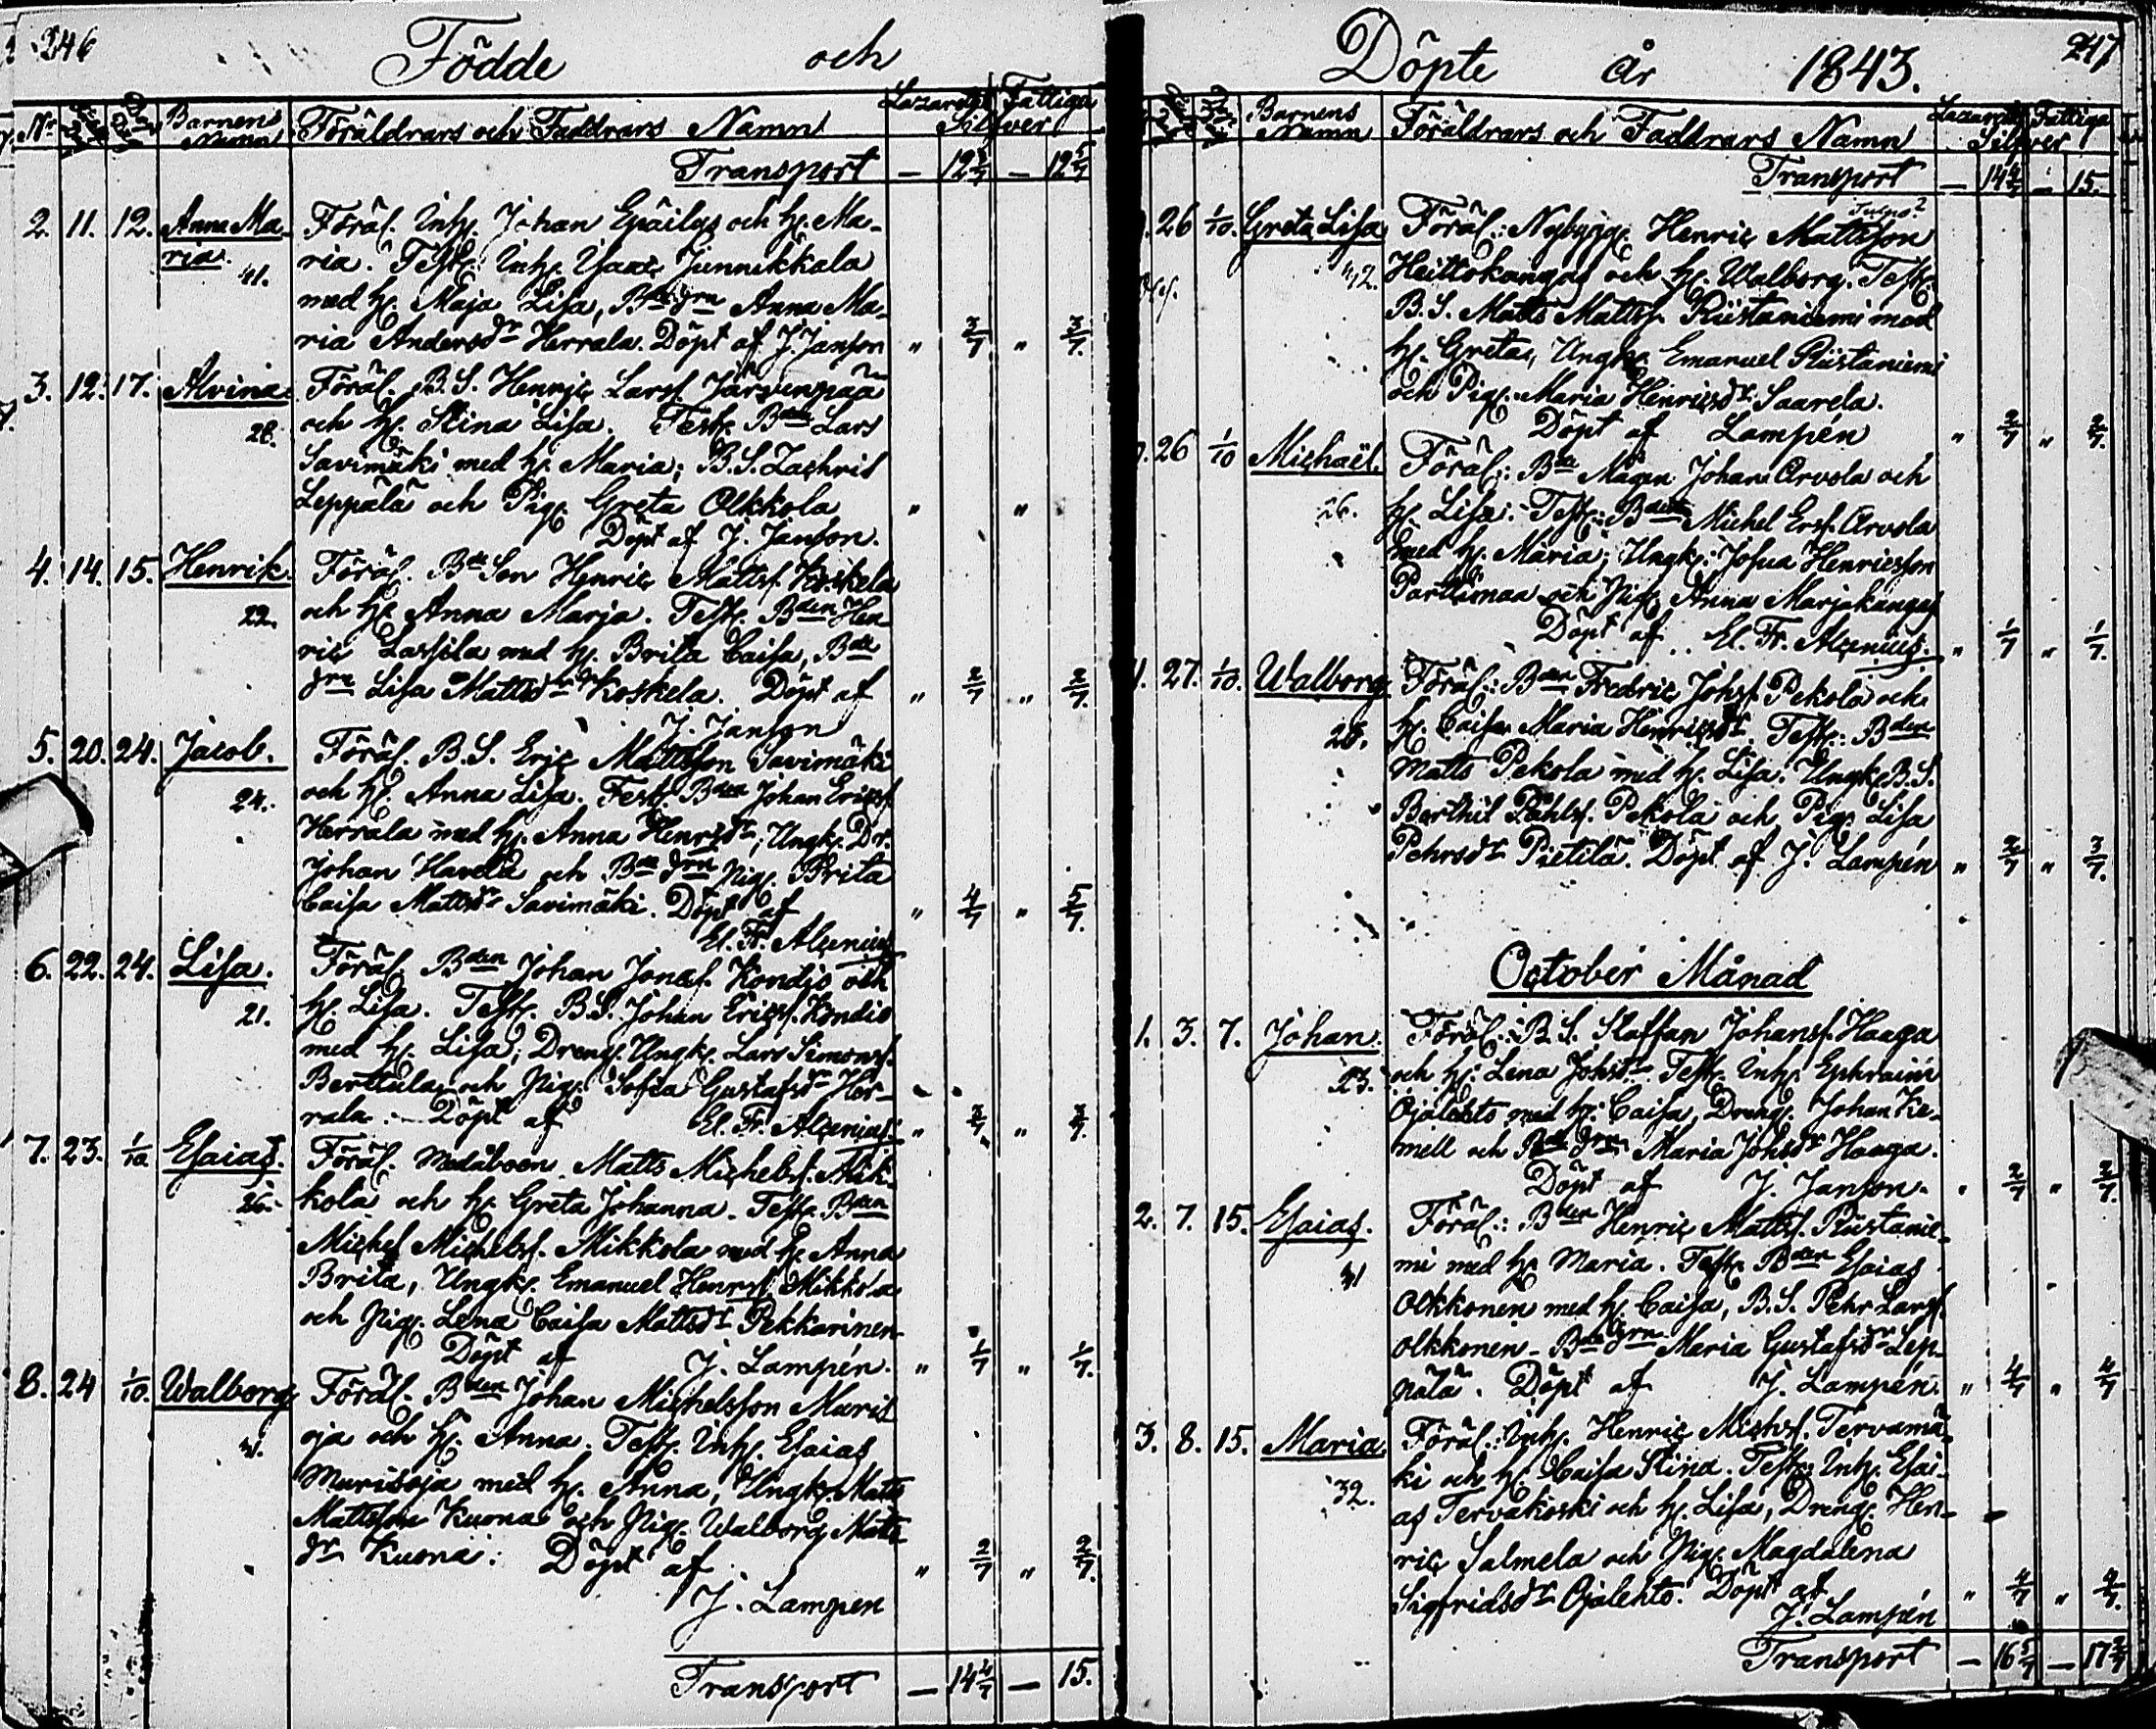 246
Födde och
No Barnens Namn Föräldrars och Faddrars Namn Lazarettet Fattiga Silfver
Transport — 12 5/7 — 12 5/7
2. 11. 12. Anna Ma- Föräl. Inh. Johan och H. Ma-
ria. 41. ria. Test. Inh. Isaac Junnikkala
med H. Maja Lisa, Bde drn Anna Ma-
ria Andersdr Herrala. Döpt af J. Janson „ 3/7 „ 3/7.
3. 12. 17. Alvina. Föräl. B.S. Henric Larsf. Järvenpää
28. och H. Stina Lisa. Test. Bden Lars
Savimäki med H. Maria; B.S. Zachris
Leppälä och Pig. Greta Olkkola „ „
Döpt af J. Janson.
4. 14. 15. Henrik. Föräl. Bde Son Henric Mattsf. Koskela
22. och H. Anna Maria. Test. Bden Hen
ric Lassila med H. Brita Caisa, Bde
drn Lisa Mattsdr Koskela. Döpt af „ 2/7 „ 2/7.
J. Janson
5. 20. 24. Jacob. Föräl. B.S. Eric Mattsson Savimäki
24. och H. Anna Lisa. Test. Bden Johan Ericsf.
Herrala med H. Anna Henrsdr, Ungk. Dr.
Johan Havela och Bde drn Pig. Brita
Caisa Mattsdr Savimäki. Döpt af „ 4/7 „ 5/7.
El. Fr. Alcenius
6. 22. 24. Lisa. Föräl. Bden Johan Jonaf. Kondio och
21. H. Lisa. Test. B.S. Johan Ericsf. Kondio
med H. Lisa; Dreng. Ungk. Lars Simonsf.
Berttula och Pig. Sofia Gustafsdr Her-
rala. Döpt af El. Fr. Alcenius. „ „
7. 23. 1/10 Esaias. Föräl. Medåboen Matts Michelsf. Mik-
26. kola och H. Greta Johanna. Test. Bden
Michel Michelsf. Mikkola med H. Anna
Brita, Ungk. Emanuel Henrsf. Mikkola
och Pig. Lena Caisa Mattsdr Pekkarinen
Döpt af J. Lampén. „ 1/7 „ 1/7.
8. 24 1/10. Walborg Föräl. Bden Johan Michelsson Maris
oja och H. Anna. Test. Inh. Esaias
Marisoja med H. Anna, Ungk. Matts
Mattsson Kuona och Pig. Walborg Matts
dr Kuona. Döpt af „ 2/7 „ 2/7.
J. Lampen
Transport — 14 4/7 — 15.
247
Döpte år 1843.
Barnens Namn Föräldrars och Faddrars Namn Lazarettet Fattiga Silfver
Transport — 14 4/7 — 15.
26 1/10. Greta Lisa Föräl.: Nybygg. Henric Mattsson
42. Heittokangas och H. Walborg. Test.
B.S. Matts Mattsf. Riistaniemi med
H. Greta, Ungk. Emanuel Riistaniemi
och Pig. Maria Henricsdr Saarela.
Döpt af Lampén „ 2/7 „ 2/7.
26 1/10 Michaël. Föräl.: Bde Mågen Johan Arvola och
26. H. Lisa. Test.: Bden Michel Ersf. Arvola
med H. Maria; Ungk. Josua Henricsson
Parttimaa och Pig. Anna Marjakangas
Döpt af El. Fr. Alcenius. „ 1/7 „ 1/7.
27. 1/10. Walborg Föräl.: Bden Fredric Johsf. Pekola och
28. H. Caisa Maria Henricsdr. Test.: Bden
Matts Pekola med H. Lisa. Ungk. B.S.
Berthil Påhlsf. Pekola och Pig. Lisa
Pehrsdr Pietilä. Döpt af J. Lampén „ 2/7 „ 3/7.
October Månad
1. 3. 7. Johan. Föräl.: B.S. Staffan Johansf. Haaga
23. och H. Lena Johsdr. Test. Inh. Ephraim
Ojalehto med H. Caisa, Dreng. Johan Ke-
mell och Bde drn Maria Johsdr Haaga.
Döpt af J. Janson. „ 2/7 „ 2/7.
2. 7. 15. Esaias. Föräl.: Bden Henric Mattsf. Riistanie-
41 mi med H. Maria. Test. Bden Esaias
Olkkonen med H. Caisa, B.S. Pehr Larsf.
Olkkonen - Bde drn Maria Gustafsdr Lep-
pälä. Döpt af J. Lampén. „ 4/7 „ 4/7
3. 8. 15. Maria. Föräl.: Inh. Henric Michsf. Tervamä-
32. ki och H. Caisa Stina. Test. Inh. Esai-
as Tervakoski och H. Lisa, Dreng. Hen-
ric Salmela och Pig. Magdalena
Sigfridsdr Ojalehto. Döpt af „ 4/7 „ 4/7.
J. Lampén
Transport — 16 5/7 — 17 2/7